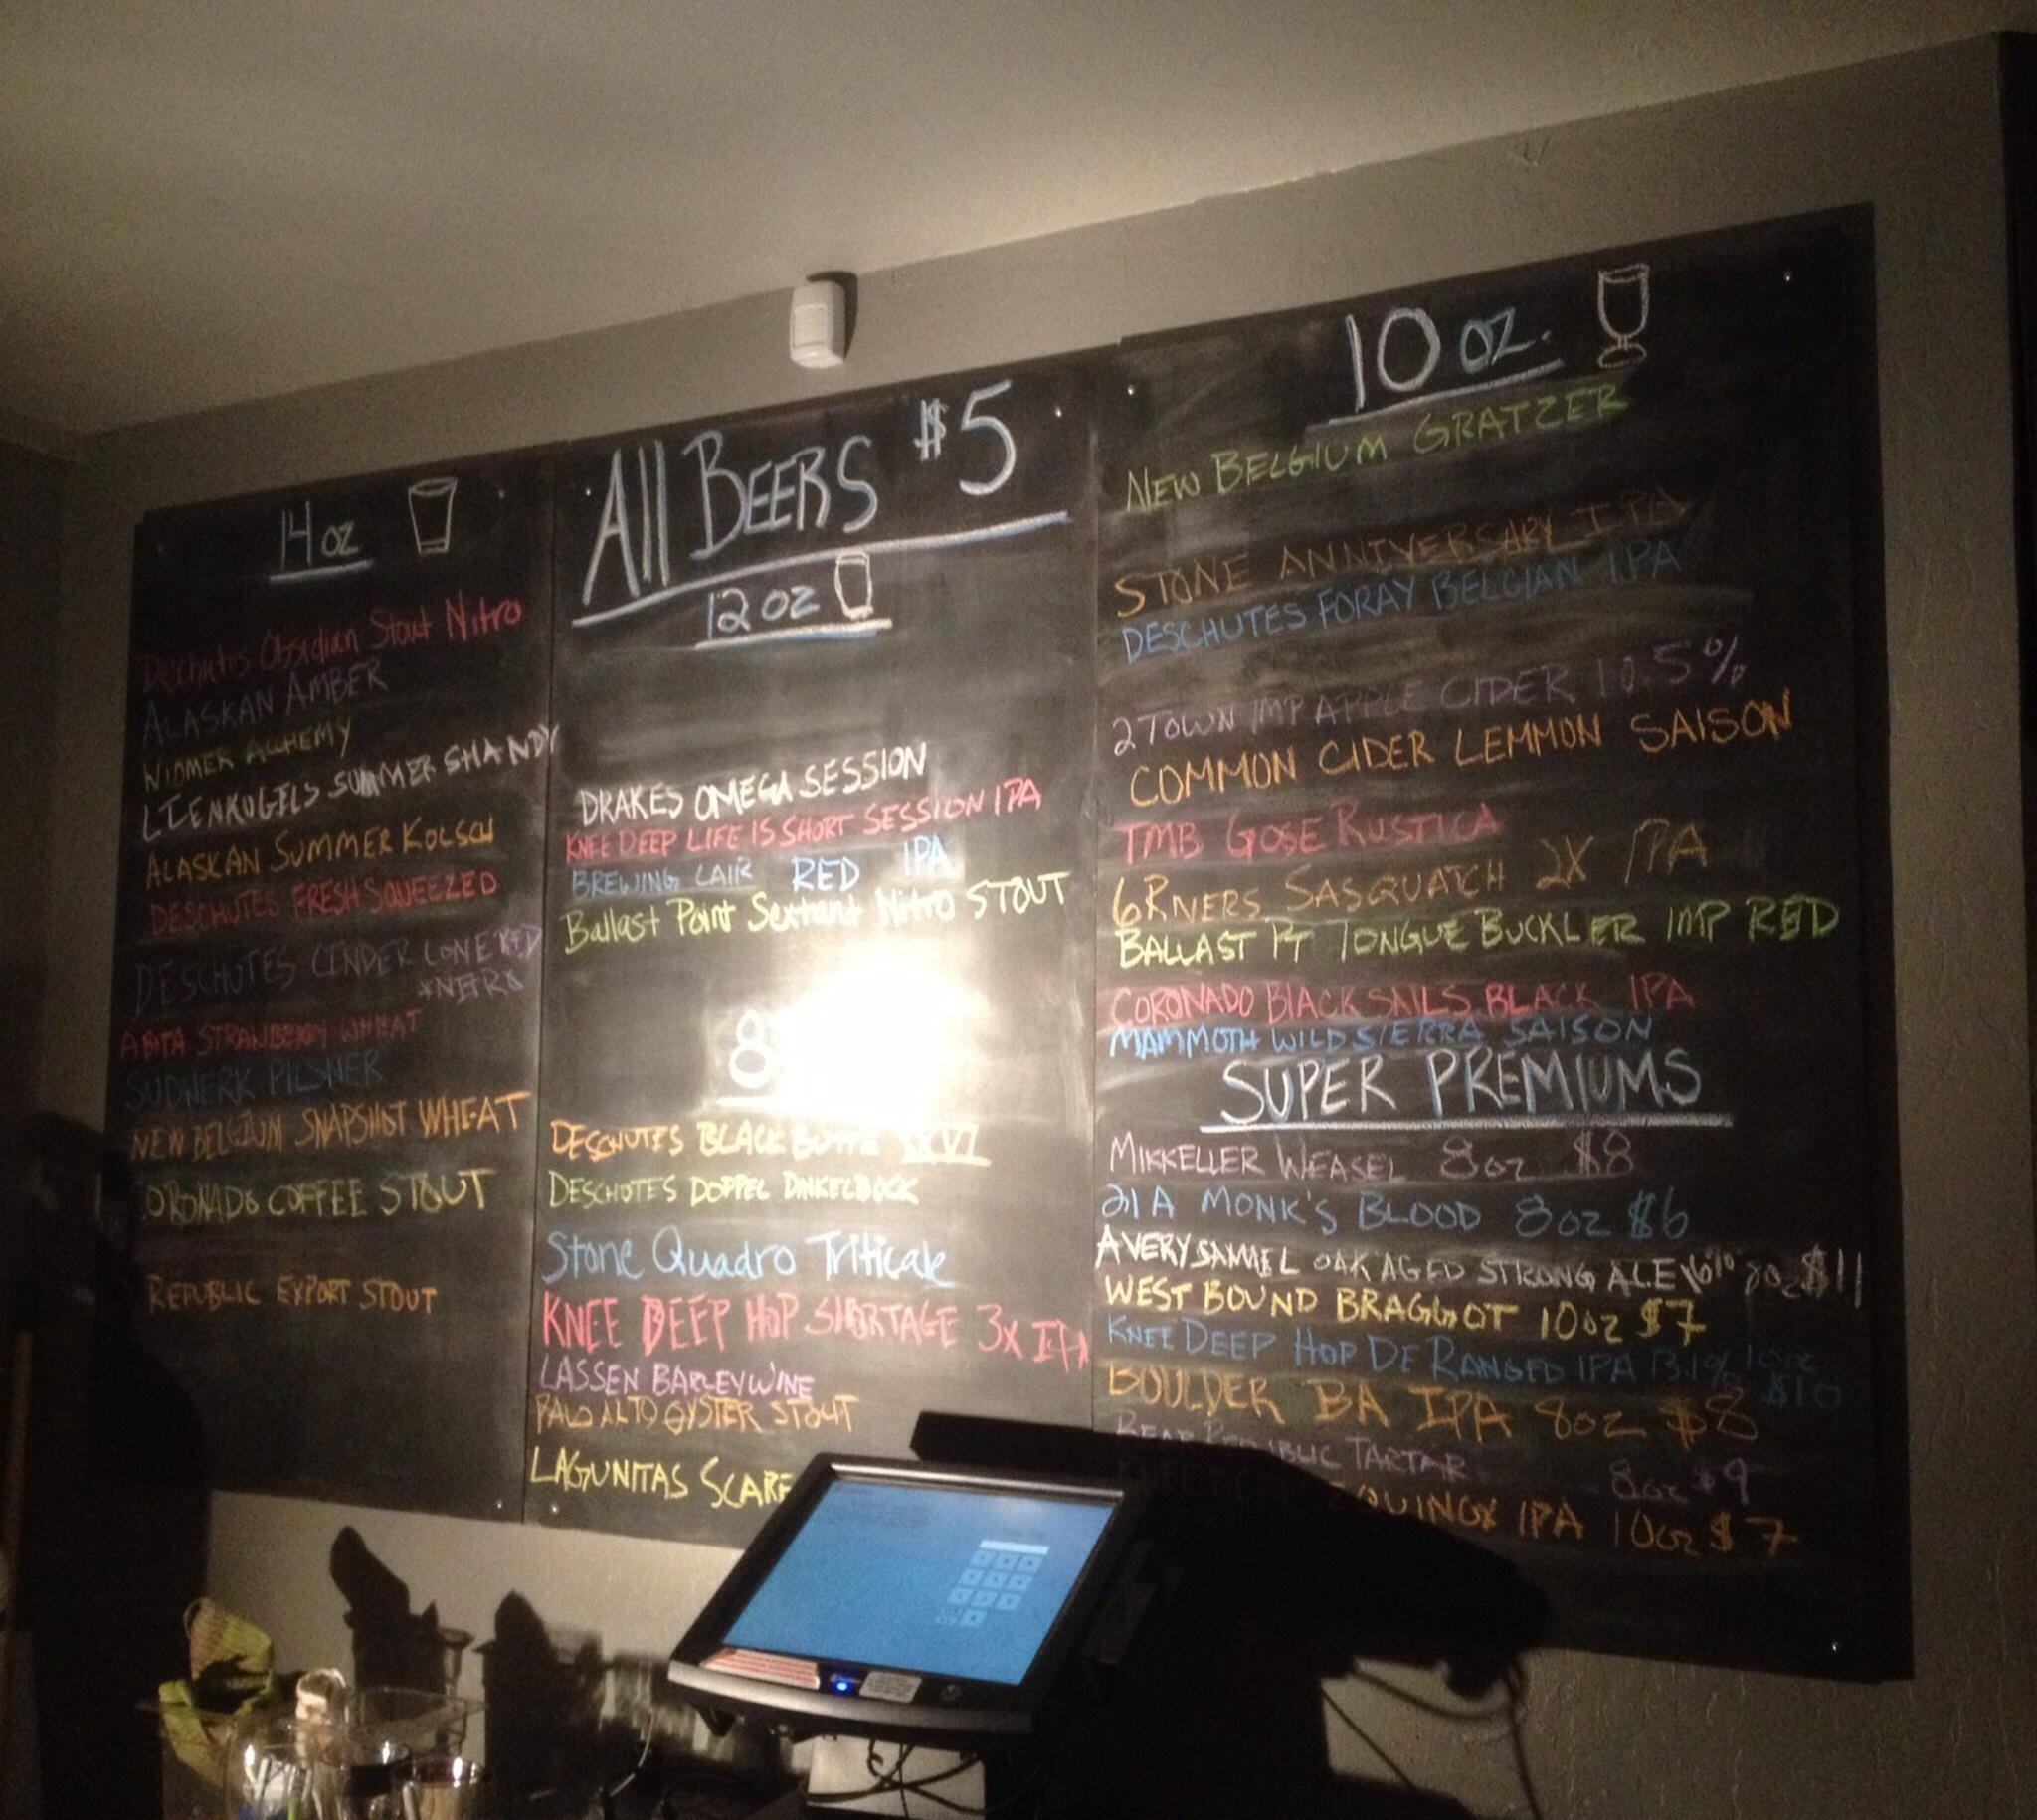 14 oz
Deschutes Obsidian Stout Nitro
ALASKAN AMBER
WIDMER ALCHEMY
LIENKUGELS SUMMER SHANDY
ALASKAN SUMMER KOLSCH
DESCHUTES FRESH SQUEEZED
DESCHUTES CINDER CONE RED
*NITRO
ABITA STRAWBERRY WHEAT
SUDWERK PILSNER
NEW BELGIUM SNAPSHOT WHEAT
CORONADO COFFEE STOUT
REPUBLIC EXPORT STOUT
All BEERS $5
12 oz
DRAKES OMEGA SESSION
KNEE DEEP LIFE IS SHORT SESSION IPA
BREWING LAIR RED IPA
Ballast Point Sextant Nitro STOUT
8
DESCHUTES BLACK BUTTE XXVI
DESCHUTES DOPPEL DINKELBOCK
Stone Quadro Triticale
KNEE DEEP HOP SHORTAGE 3X IPA
LASSEN BARLEYWINE
PALO ALTO OYSTER STOUT
LAGUNITAS
10 oz.
NEW BELGIUM GRATZER
STONE ANNIVERSARY IPA
DESCHUTES FORAY BELGIAN IPA
2 TOWN IMP APPLE CIDER 10.5%
COMMON CIDER LEMMON SAISON
TMB GOSE RUSTICA
6 RIVERS SASQUATCH 2X IPA
BALLAST PT TONGUE BUCKLER IMP RED
CORONADO BLACK SAILS BLACK IPA
MAMMOTH WILD SIERRA SAISON
SUPER PREMIUMS
MIKKELLER WEASEL 8oz $8
21 A MONK'S BLOOD 8 oz $6
AVERY SAMAEL OAK AGED STRONG ALE 16% 8oz $11
WEST BOUND BRAGGOT 10oz $7
KNEE DEEP HOP DE RANGED IPA 13.1% 10oz
$10
BOULDER BA IPA 8oz $8
BEAR REPUBLIC TARTAR 8oz $9
EQUINOX IPA 10oz $7